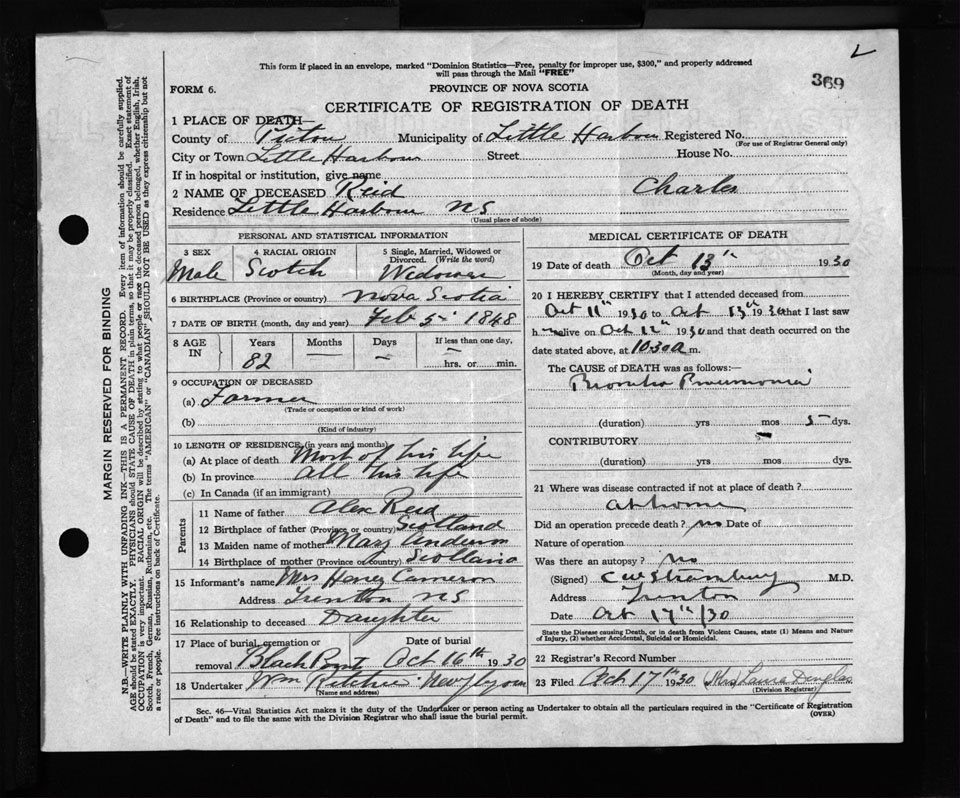 L
This form if placed in an envelope, marked "Dominion Statistics—Free, penalty for improper use, $300," and properly addressed
will pass through the Mail "FREE"
369
FORM 6. PROVINCE OF NOVA SCOTIA
CERTIFICATE OF REGISTRATION OF DEATH
1 PLACE OF DEATH—
County of Pictou Municipality of Little Harbour Registered No.
(For use of Registrar General only)
City or Town Little Harbour Street House No.
If in hospital or institution, give name
2 NAME OF DECEASED Reid Charles
Residence Little Harbour NS
(Usual place of abode)
PERSONAL AND STATISTICAL INFORMATION
3 SEX 4 RACIAL ORIGIN 5 Single, Married, Widowed or Divorced. (Write the word)
Male Scotch Widower
6 BIRTHPLACE (Province or country) Nova Scotia
7 DATE OF BIRTH (month, day and year) Feb 5 1848
8 AGE IN Years Months Days If less than one day,
82 — — — hrs. or min.
9 OCCUPATION OF DECEASED
(a) Farmer
(Trade or occupation or kind of work)
(b)
(Kind of industry)
10 LENGTH OF RESIDENCE (in years and months)
(a) At place of death Most of his life
(b) In province All his life
(c) In Canada (if an immigrant)
Parents
11 Name of father Alex Reid
12 Birthplace of father (Province or country) Scotland
13 Maiden name of mother Mary Anderson
14 Birthplace of mother (Province or country) Scotland
15 Informant's name Mrs Henry Cameron
Address Trenton NS
16 Relationship to deceased Daughter
17 Place of burial, cremation or removal Black Point Date of burial Oct 16th 1930
18 Undertaker Wm Ritchie
(Name and address)
MEDICAL CERTIFICATE OF DEATH
19 Date of death Oct 13th 1930
(Month, day and year)
20 I HEREBY CERTIFY that I attended deceased from
Oct 11th 1930 to Oct 13th 1930 that I last saw
h alive on Oct 12th 1930 and that death occurred on
date stated above, at 10:30 a m.
The CAUSE of DEATH was as follows:—
Broncho Pneumonia
(duration) yrs mos 5 dys.
CONTRIBUTORY —
(duration) yrs. mos. dys.
21 Where was disease contracted if not at place of death?
at home
Did an operation precede death? no Date of
Nature of operation
Was there an autopsy? No
(Signed) M.D.
Address Trenton
Date Oct 17th/30
State the Disease causing Death, or in death from Violent Causes, state (1) Means and Nature
of Injury, (2) whether Accidental, Suicidal or Homicidal.
22 Registrar's Record Number
23 Filed Oct 17th 1930 Mrs Laura Douglas
(Division Registrar)
Sec. 46—Vital Statistics Act makes it the duty of the Undertaker or person acting as Undertaker to obtain all the particulars required in the "Certificate of Registration
of Death" and to file the same with the Division Registrar who shall issue the burial permit. (OVER)
MARGIN RESERVED FOR BINDING
N.B.—WRITE PLAINLY WITH UNFADING INK—THIS IS A PERMANENT RECORD. Every item of information should be carefully supplied.
AGE should be stated EXACTLY. PHYSICIANS should STATE CAUSE OF DEATH in plain terms, so that it may be properly classified. Exact statement of
OCCUPATION is very important. RACIAL ORIGIN will be described by stating to what people or race the deceased person belonged, whether English, Irish,
Scotch, French, German, Russian, Ruthenian, etc. The terms "AMERICAN" or "CANADIAN" SHOULD NOT BE USED as they express citizenship but not
a race or people. See instructions on back of Certificate.